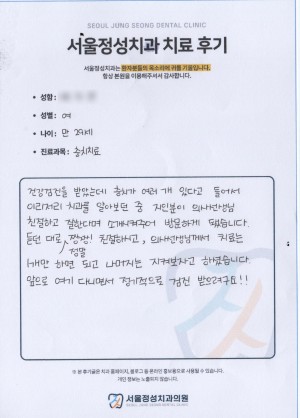 SEOUL JUNG SEONG DENTAL CLINIC
서울정성치과 치료 후기
서울정성치과는 환자분들의 목소리에 귀를 기울입니다.
항상 본원을 이용해주셔서 감사합니다.
• 성함 :
• 성별 : 여
• 나이 : 만 29세
• 진료과목 : 충치치료
건강검진을 받았는데 충치가 여러 개 있다고 들어서
이리저리 치과를 알아보던 중 지인분이 의사선생님
친절하고 잘한다며 소개시켜주어 방문하게 됐습니다.
듣던 대로 정말 짱짱! 친절하시고, 의사선생님께서 치료는
1개만 하면 되고 나머지는 지켜보자고 하셨습니다.
앞으로 여기 다니면서 정기적으로 검진 받으려구요!!
※ 본 후기글은 치과 홈페이지, 블로그 등 온라인 홍보용으로 사용될 수 있습니다.
개인 정보는 노출되지 않습니다.
서울정성치과의원
SEOUL JUNG SEONG DENTAL CLINIC